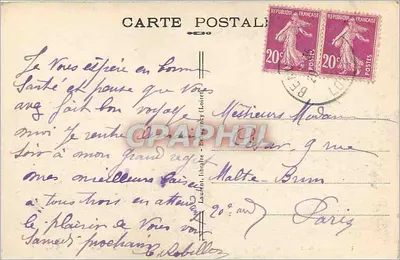 CARTE POSTALE
REPUBLIQUE FRANÇAISE
20c
POSTES
REPUBLIQUE FRANÇAISE
20c
POSTES
Je Vous espère en bonne
Santé et pense que Vous
avez fait bon voyage
moi je rentre
soir à mon grand regret
mes meilleurs baisers
à tous trois en attendant
le plaisir de Vous voir
Samedi prochain
Messieurs Madame
9 rue
Malte-Brun
20e
Paris
CPAPHIL